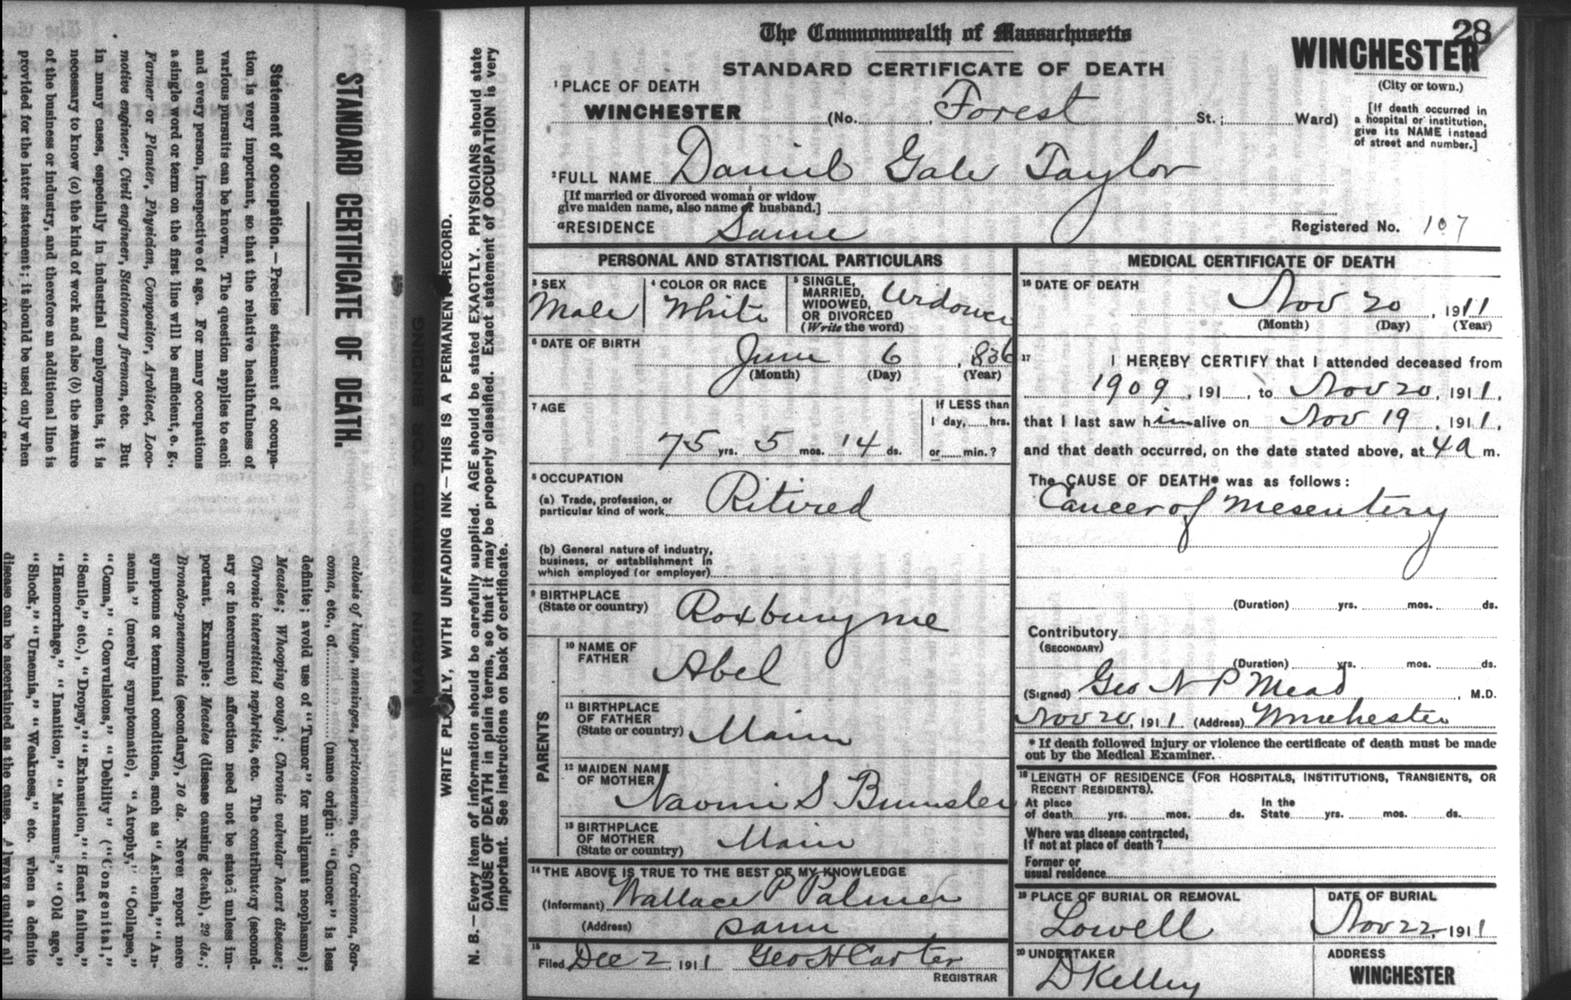 The Commonwealth of Massachusetts
28
STANDARD CERTIFICATE OF DEATH
WINCHESTER
(City or town.)
1 PLACE OF DEATH
WINCHESTER (No. , Forest St.; Ward)
[If death occurred in
a hospital or institution,
give its NAME instead
of street and number.]
2 FULL NAME Daniel Gale Taylor
[If married or divorced woman or widow
give maiden name, also name of husband.]
aRESIDENCE Same
Registered No. 107
PERSONAL AND STATISTICAL PARTICULARS
3 SEX
Male
4 COLOR OR RACE
White
5 SINGLE,
MARRIED,
WIDOWED,
OR DIVORCED
(Write the word)
Widower
6 DATE OF BIRTH
June 6, 836
(Month) (Day) (Year)
7 AGE
75 yrs. 5 mos. 14 ds.
If LESS than
1 day, hrs.
or min.?
8 OCCUPATION
(a) Trade, profession, or
particular kind of work
Ritired
(b) General nature of industry,
business, or establishment in
which employed (or employer)
9 BIRTHPLACE
(State or country)
Roxbury me
PARENTS
10 NAME OF
FATHER
Abel
11 BIRTHPLACE
OF FATHER
(State or country)
Maine
12 MAIDEN NAME
OF MOTHER
Naomi S
13 BIRTHPLACE
OF MOTHER
(State or country)
Maine
14 THE ABOVE IS TRUE TO THE BEST OF MY KNOWLEDGE
(Informant) Wallace P Palmer
(Address) same
15
Filed Dec 2, 1911 Geo H Carter
REGISTRAR
MEDICAL CERTIFICATE OF DEATH
16 DATE OF DEATH
Nov 20, 1911
(Month) (Day) (Year)
17 I HEREBY CERTIFY that I attended deceased from
1909, 191 , to Nov 20, 1911,
that I last saw him alive on Nov 19, 1911,
and that death occurred, on the date stated above, at 4a m.
The CAUSE OF DEATH* was as follows:
Cancer of mesentery
(Duration) yrs. mos. ds.
Contributory
(SECONDARY)
(Duration) yrs. mos. ds.
(Signed) Geo N P Mead, M.D.
Nov 20, 1911 (Address) Winchester
* If death followed injury or violence the certificate of death must be made
out by the Medical Examiner.
18 LENGTH OF RESIDENCE (FOR HOSPITALS, INSTITUTIONS, TRANSIENTS, OR
RECENT RESIDENTS).
At place
of death yrs. mos. ds.
In the
State yrs. mos. ds.
Where was disease contracted,
If not at place of death?
Former or
usual residence
19 PLACE OF BURIAL OR REMOVAL
Lowell
DATE OF BURIAL
Nov 22, 1911
20 UNDERTAKER
D Kelley
ADDRESS
WINCHESTER
MARGIN RESERVED FOR BINDING
WRITE PLAINLY, WITH UNFADING INK—THIS IS A PERMANENT RECORD.
N. B.—Every item of information should be carefully supplied. AGE should be stated EXACTLY. PHYSICIANS should state
CAUSE OF DEATH in plain terms, so that it may be properly classified. Exact statement of OCCUPATION is very
important. See instructions on back of certificate.
STANDARD CERTIFICATE OF DEATH.
Statement of occupation.—Precise statement of occupa-
tion is very important, so that the relative healthfulness of
various pursuits can be known. The question applies to each
and every person, irrespective of age. For many occupations
a single word or term on the first line will be sufficient, e. g.,
Farmer or Planter, Physician, Compositor, Architect, Loco-
motive engineer, Civil engineer, Stationary fireman, etc. But
in many cases, especially in industrial employments, it is
necessary to know (a) the kind of work and also (b) the nature
of the business or industry, and therefore an additional line is
provided for the latter statement; it should be used only when
culosis of lungs, meninges, peritonaeum, etc., Carcinoma, Sar-
coma, etc., of.......... (name origin: "Cancer" is less
definite; avoid use of "Tumor" for malignant neoplasms);
Measles; Whooping cough; Chronic valvular heart disease;
Chronic interstitial nephritis, etc. The contributory (second-
ary or intercurrent) affection need not be stated unless im-
portant. Example: Measles (disease causing death), 29 ds.;
Broncho-pneumonia (secondary), 10 ds. Never report mere
symptoms or terminal conditions, such as "Asthenia," "An-
aemia" (merely symptomatic), "Atrophy," "Collapse,"
"Coma," "Convulsions," "Debility" ("Congenital,"
"Senile," etc.), "Dropsy," "Exhaustion," "Heart failure,"
"Haemorrhage," "Inanition," "Marasmus," "Old age,"
"Shock," "Uraemia," "Weakness," etc. when a definite
disease can be ascertained as the cause. Always qualify all